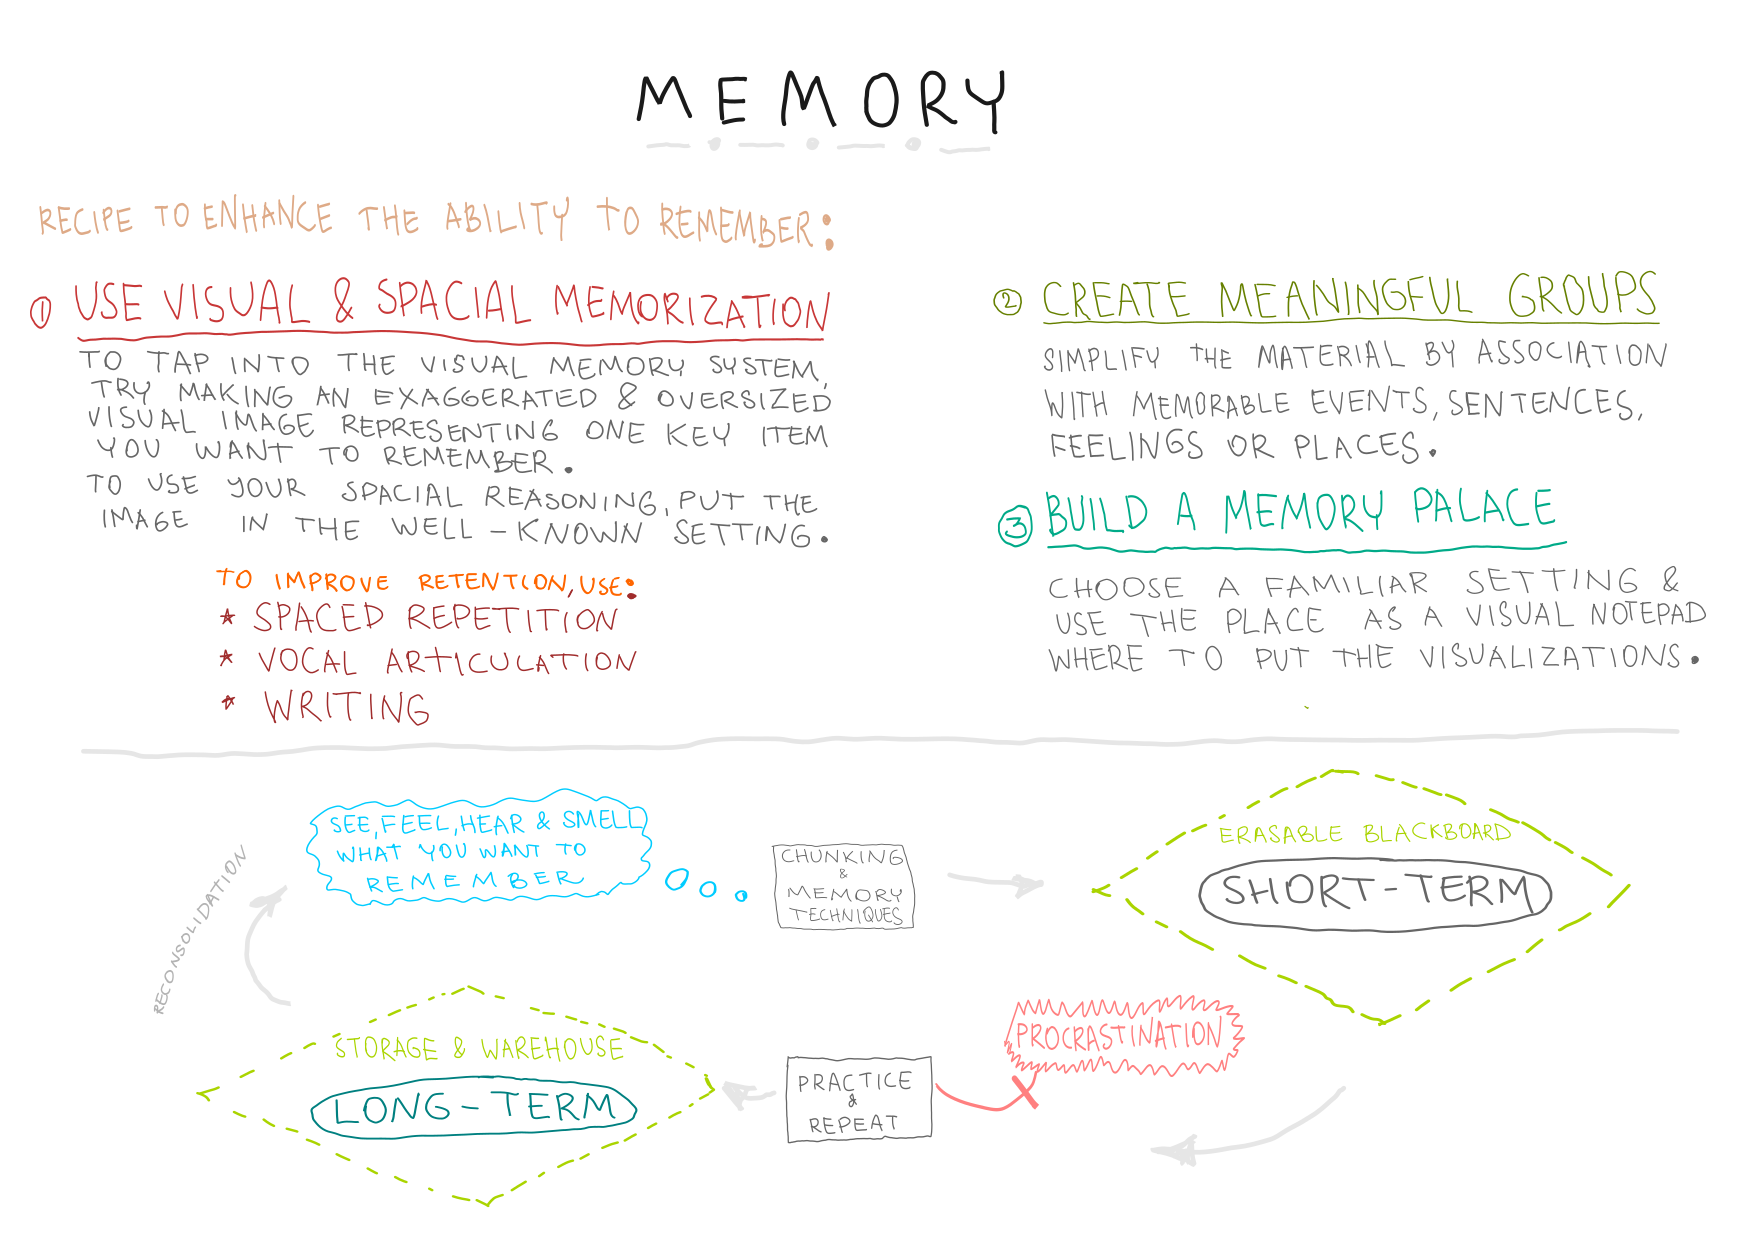 MEMORY
RECIPE TO ENHANCE THE ABILITY TO REMEMBER:
1 USE VISUAL & SPACIAL MEMORIZATION
TO TAP INTO THE VISUAL MEMORY SYSTEM,
TRY MAKING AN EXAGGERATED & OVERSIZED
VISUAL IMAGE REPRESENTING ONE KEY ITEM
YOU WANT TO REMEMBER.
TO USE YOUR SPACIAL REASONING, PUT THE
IMAGE IN THE WELL-KNOWN SETTING.
TO IMPROVE RETENTION, USE:
* SPACED REPETITION
* VOCAL ARTICULATION
* WRITING
2 CREATE MEANINGFUL GROUPS
SIMPLIFY THE MATERIAL BY ASSOCIATION
WITH MEMORABLE EVENTS, SENTENCES,
FEELINGS OR PLACES.
3 BUILD A MEMORY PALACE
CHOOSE A FAMILIAR SETTING &
USE THE PLACE AS A VISUAL NOTEPAD
WHERE TO PUT THE VISUALIZATIONS.
SEE, FEEL, HEAR & SMELL
WHAT YOU WANT TO
REMEMBER
CHUNKING
&
MEMORY
TECHNIQUES
ERASABLE BLACKBOARD
SHORT-TERM
PROCRASTINATION
PRACTICE
&
REPEAT
STORAGE & WAREHOUSE
LONG-TERM
RECONSOLIDATION